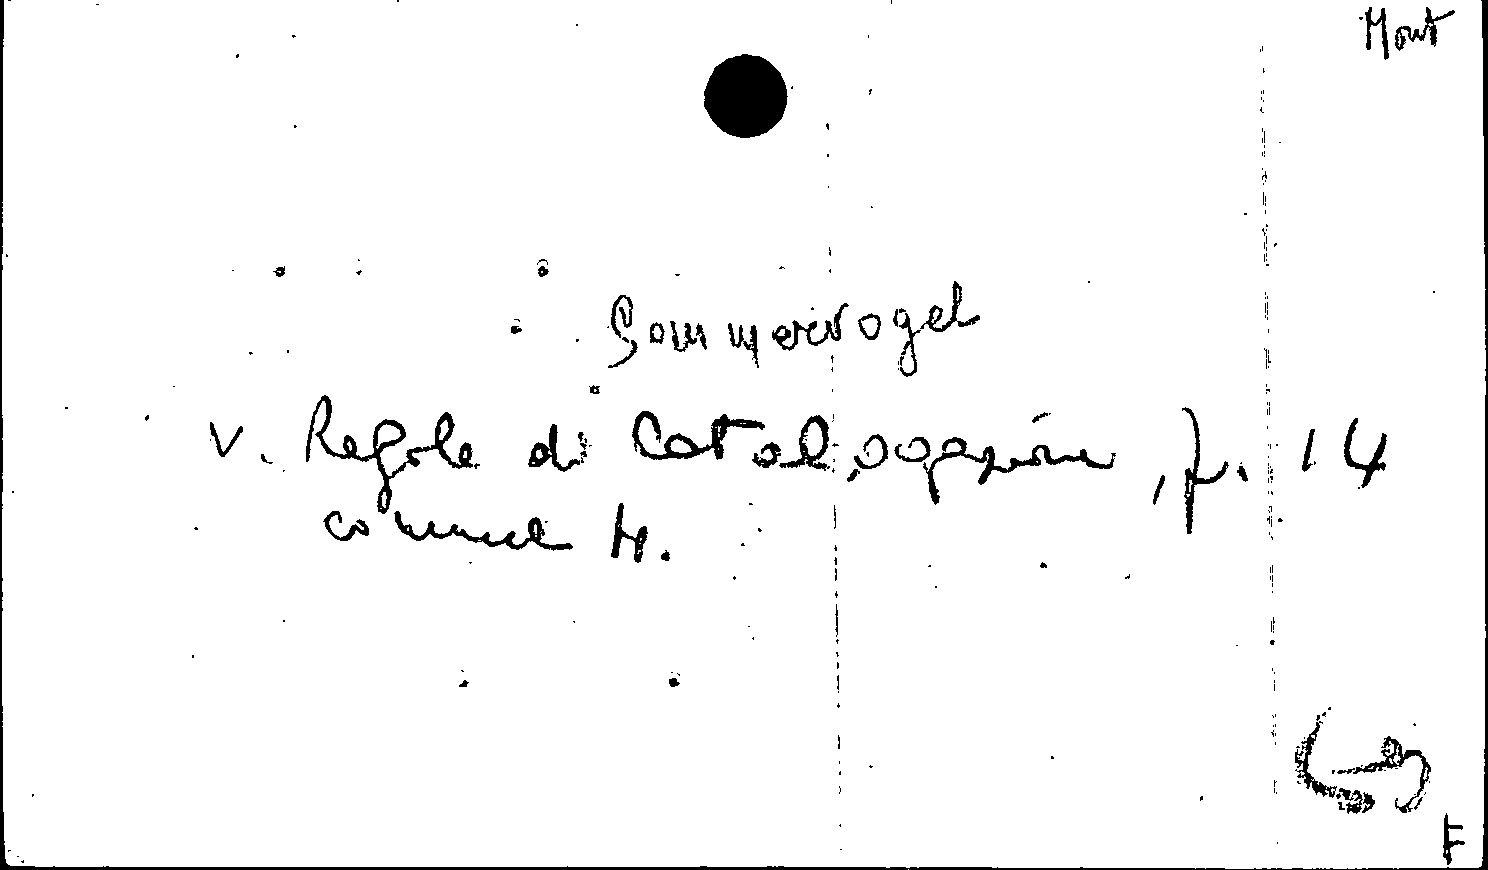 Mont
Sommervogel
v. Regole di Catalogazione, p. 14
comma 4.
F